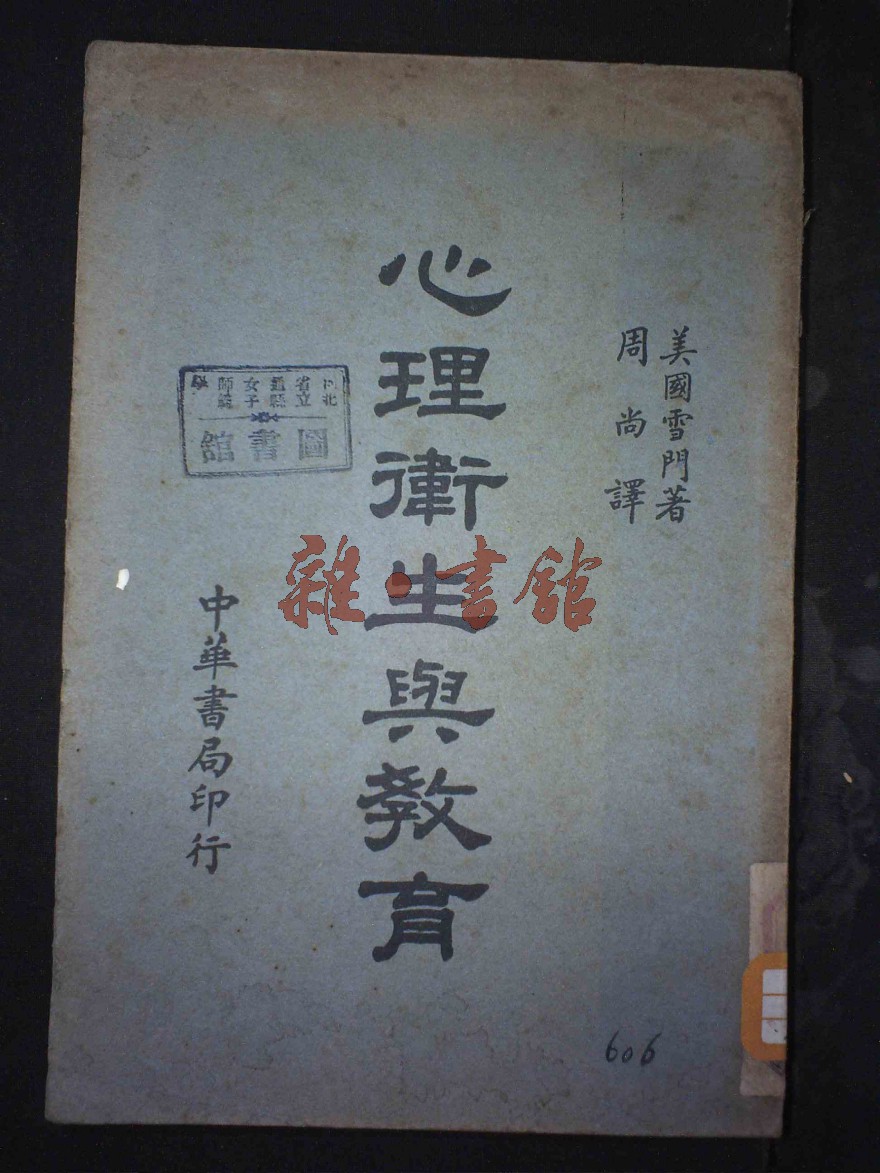 美國雪門著
周尚譯
心理衛生與教育
河北
省立
通縣
女子
師範
學
圖書館
中華書局印行
雜·書館
606